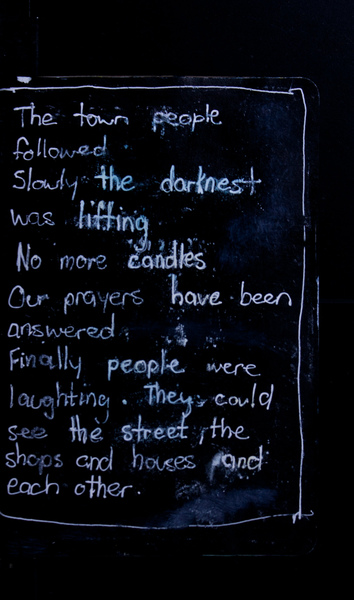 The town people
followed.
Slowly the darknest
was lifting
No more candles
Our prayers have been
answered.
Finally people were
laughting. They could
see the street, the
shops and houses and
each other.